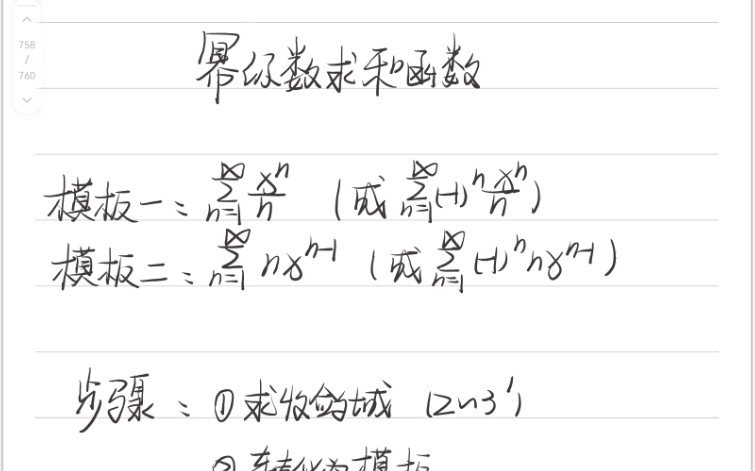 758
/
760
幂级数求和函数
模板一：∑_{n=1}^{∞} x^n/n （或 ∑_{n=1}^{∞} (-1)^n x^n/n）
模板二：∑_{n=1}^{∞} nx^{n-1} （或 ∑_{n=1}^{∞} (-1)^n nx^{n-1}）
步骤：①求收敛域 （2~3'）
②转化为模板